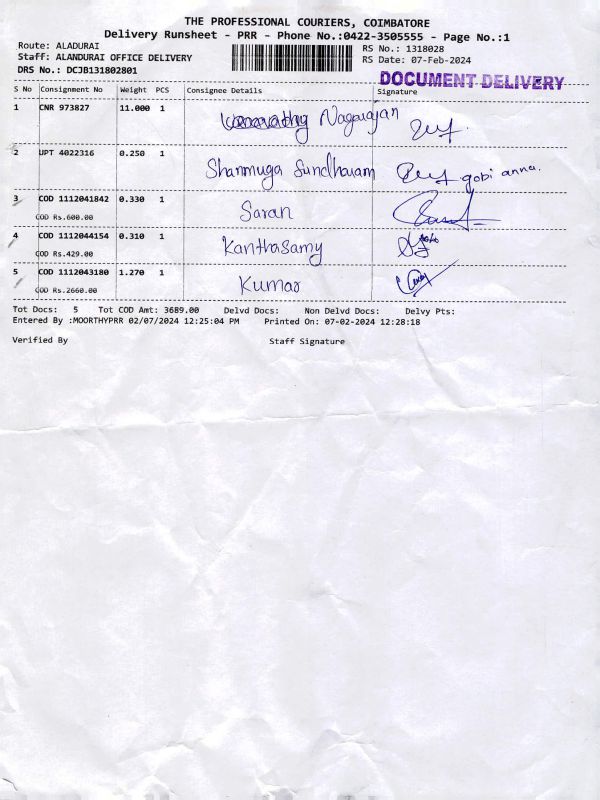 THE PROFESSIONAL COURIERS, COIMBATORE
Delivery Runsheet - PRR - Phone No.:0422-3505555 - Page No.:1
Route: ALADURAI
Staff: ALANDURAI OFFICE DELIVERY
DRS No.: DCJB131802801
RS No.: 1318028
RS Date: 07-Feb-2024
DOCUMENT DELIVERY
S No Consignment No Weight PCS Consignee Details Signature
1 CNR 973827 11.000 1 Nagarajan
2 UPT 4022316 0.250 1 Shanmuga Sundharam gobi anna.
3 COD 1112041842 0.330 1 Saran
COD Rs.600.00
4 COD 1112044154 0.310 1 Kanthasamy
COD Rs.429.00
5 COD 1112043180 1.270 1 Kumar
COD Rs.2660.00
Tot Docs: 5 Tot COD Amt: 3689.00 Delvd Docs: Non Delvd Docs: Delvy Pts:
Entered By :MOORTHYPRR 02/07/2024 12:25:04 PM Printed On: 07-02-2024 12:28:18
Verified By Staff Signature